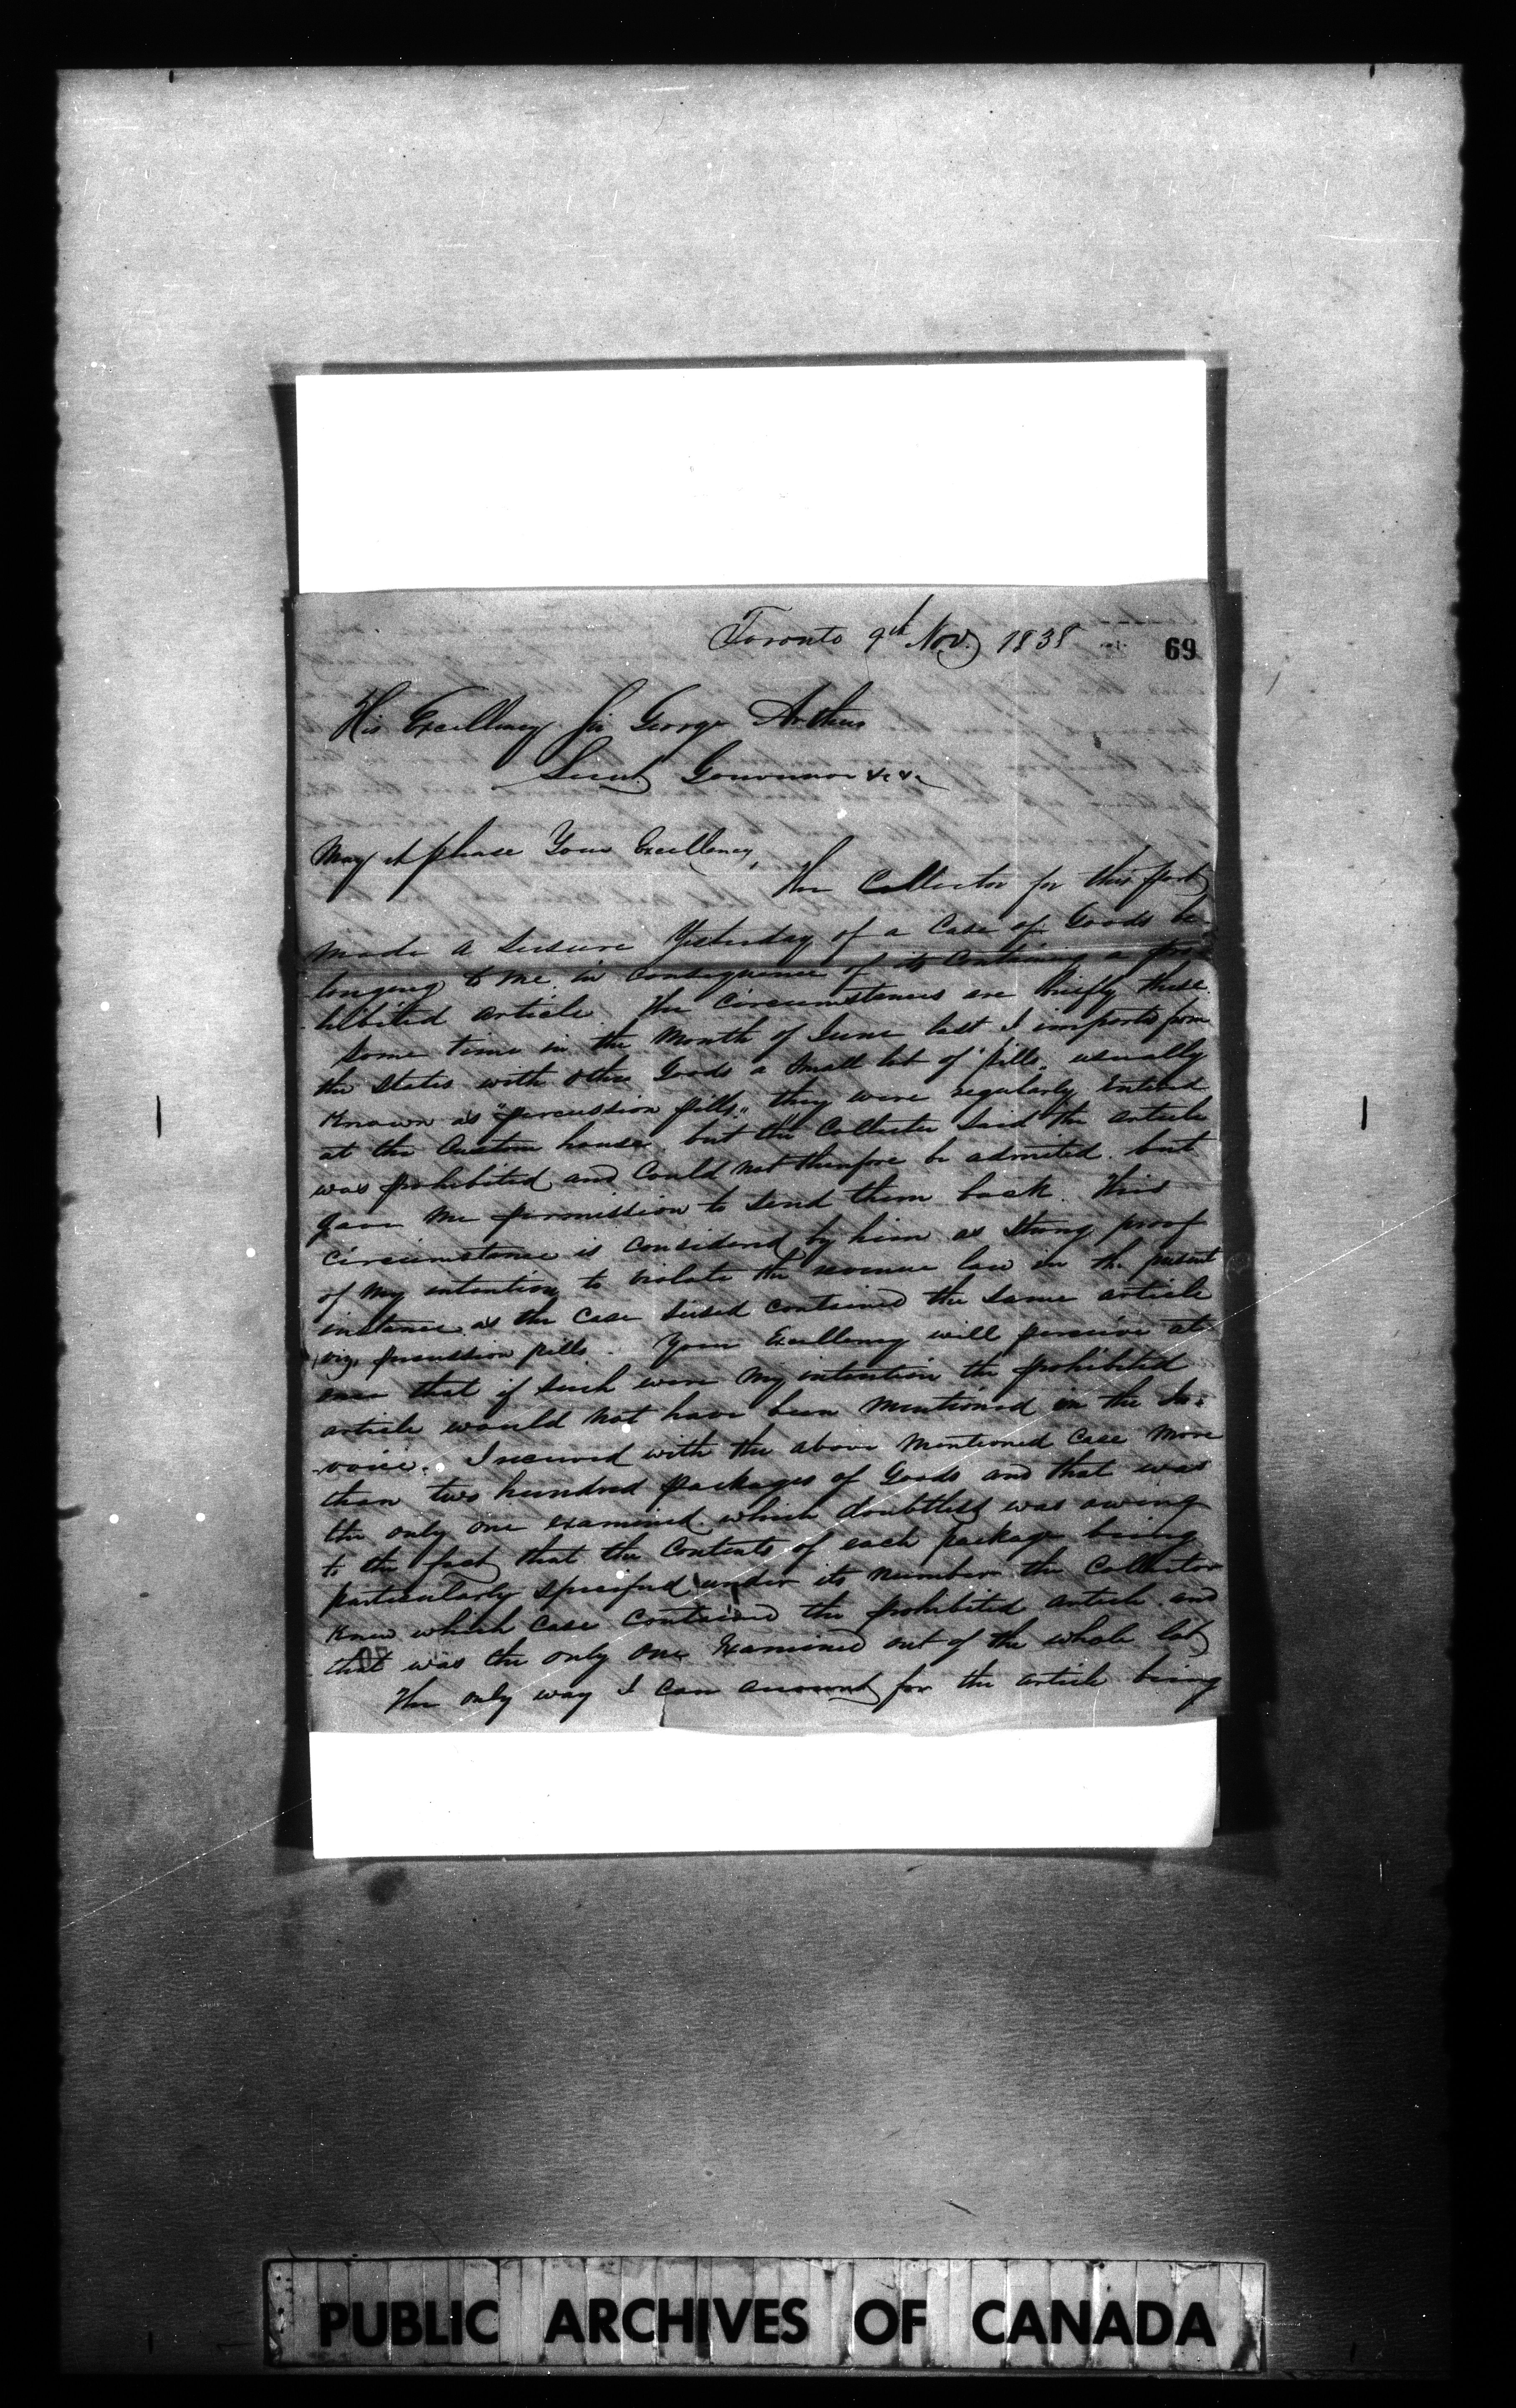 Toronto 9th Nov. 1838
69
His Excellency Sir George Arthur
Lieut Governor &c &c
May it please Your Excellency,
The Collector for this port
made a seisure Yesterday of a Case of Goods be
longing to me in consequence of its containing a pro
hibited article. The circumstances are briefly these.
Some time in the Month of June last I imported from
the States with other Goods a small lot of "pills" usually
Known as "percussion pills" they were regularly entered
at the Custom house, but the Collector said the article
was prohibited and could not therefore be admited. but
gave me permission to send them back. This
circumstance is considered by him as strong proof
of my intention to violate the revenue law in the present
instance as the case seised contained the same article
viz. percussion pills. Your Excellency will perceive at
once that if such were my intention the prohibited
article would not have been mentioned in the In=
voice. I received with the above mentioned case more
than two hundred packages of Goods and that was
the only one examined which doubtless was owing
to the fact that the contents of each package being
particularly specified under its number the Collector
knew which case contained the prohibited article and
that was the only one Examined out of the whole lot
The only way I can account for the article being
PUBLIC ARCHIVES OF CANADA